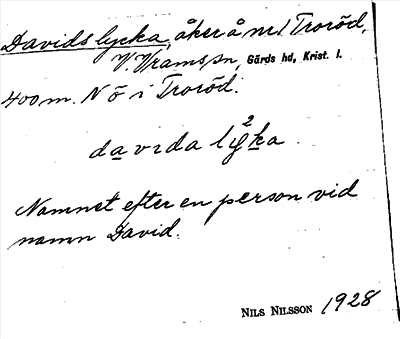 Davidslycka, åker å nr 1 Troröd,
V. Vrams sn, Gärds hd, Krist. l.
400 m. N Ö i Troröd.
davida lyka
2
Namnet efter en person vid
namn David.
NILS NILSSON 1928